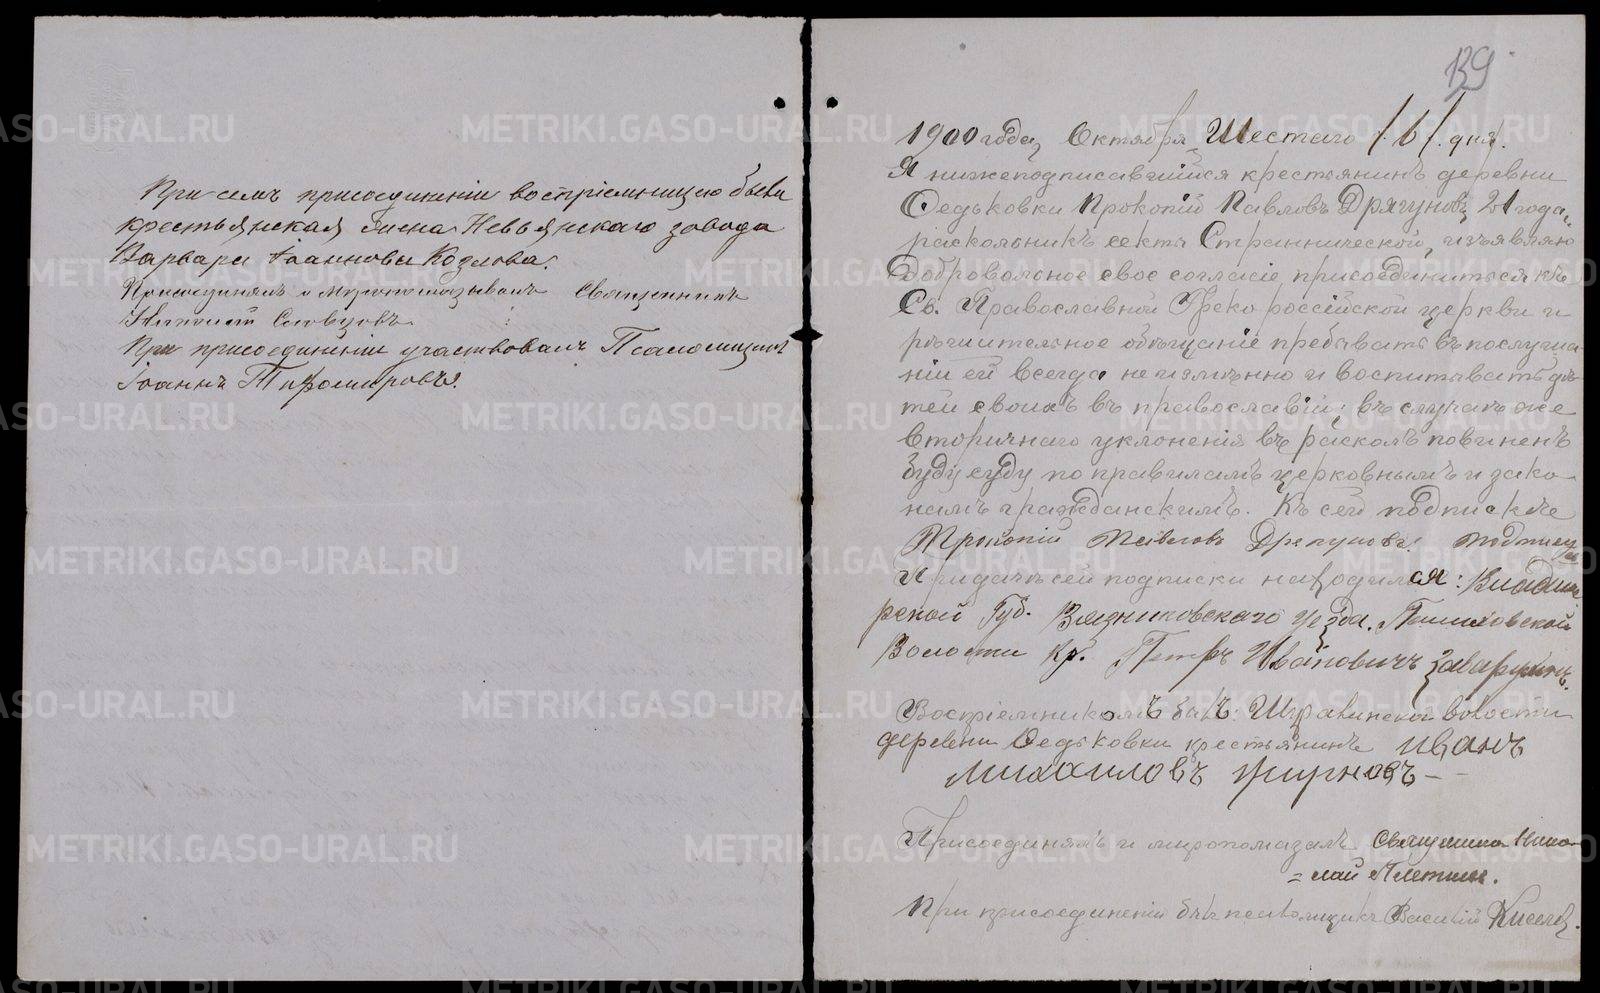 При семъ присоединеніи воспріемницею была
крестьянская жена Невьянскаго завода
Варвара Іоаннова Козлова.
Присоединялъ и мѵропомазывалъ Священникъ
Словцовъ
При присоединеніи участвовалъ Псаломщикъ
Іоаннъ Тихомировъ.
139
1900 года Октября Шестаго /6/ дня.
Я нижеподписавшійся крестьянинъ деревни
Федьковки Прокопій Павловъ Дрягуновъ 21 года,
раскольникъ секты Страннической, изъявляю
добровольное свое согласіе присоединиться къ
Св. Православной Греко россійской церкви и
рѣшительное обѣщаніе пребывать въ послуша-
ніи ей всегда неизмѣнно и воспитывать дѣ-
тей своихъ въ православіи; въ случаѣ же
вторичнаго уклоненія въ расколъ повиненъ
буду суду по правиламъ церковнымъ и зако-
намъ гражданскимъ. Къ сей подпискѣ
Прокопій Павловъ Дрегуновъ
При дачѣ сей подписки находился: Владимі
рской Губ. Вязниковскаго уезда.
Волости Кр. Петръ Ивановичъ
Воспріемникомъ былъ: волости
деревни Федьковки крестьянинъ иванъ
михаиловъ
Присоединялъ и миропомазалъ Священникъ Нико-
=лай Плетнев.
При присоединеніи былъ псаломщикъ Василій Киселев.
METRIKI.GASO-URAL.RU